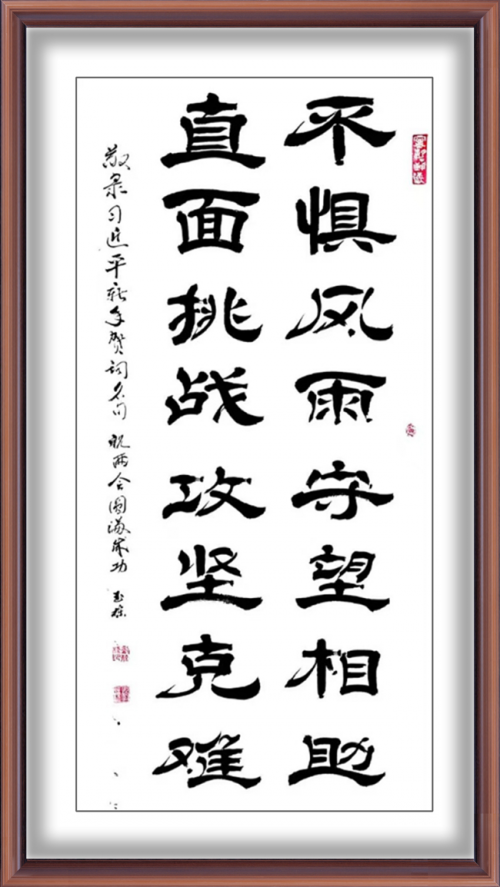 不惧风雨守望相助
直面挑战攻坚克难
敬录习近平新年贺词名句 祝两会圆满成功